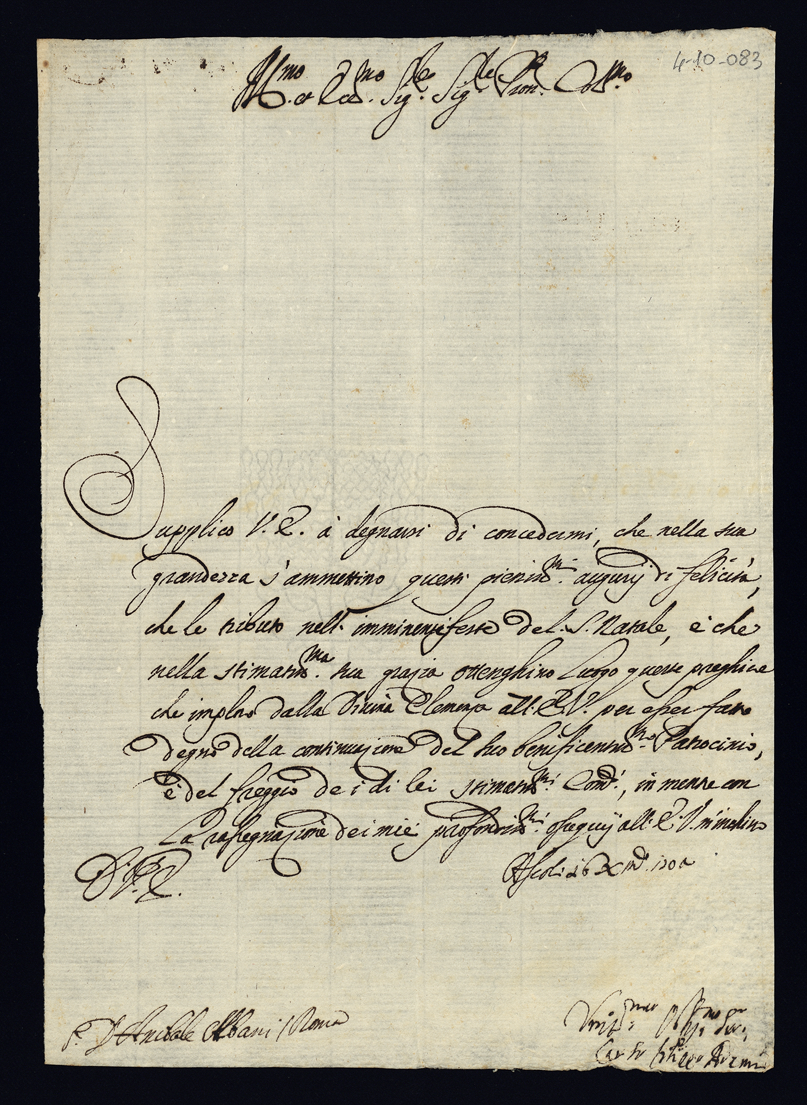 4-10-083
Ill.mo et Ecc.mo Sig.re Sig.re Pron. Col.mo
Supplico V. E. à degnarsi di concedermi, che nella sua
grandezza s'ammettino questi pieniss.mi augurij di felicità,
che le tributo nell' imminenti feste del S. Natale, e che
nella stimatiss.ma sua grazia ottenghino luogo queste preghiere
che imploro dalla Divina Clemenza all' E. V. per esser fatto
degno della continuazione del suo beneficentiss.mo Patrocinio,
e del freggio de i di lei stimatiss.mi Com.di, in mentre con
la rassegnazione dei miei profondiss.mi ossequij all' E. V. m'inchino
D. V. E.
Ascoli 16 Xmbre
S. D. Annibale Albani / Roma